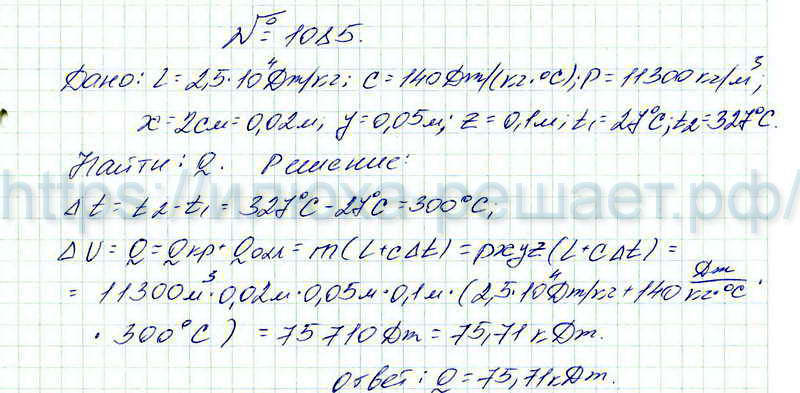 № 1085.
Дано: L = 2,5·10⁴ Дж/кг; c = 140 Дж/(кг·°C); ρ = 11300 кг/м³;
x = 2см = 0,02м; y = 0,05м; z = 0,1м; t₁ = 27°C; t₂ = 327°C.
Найти: Q. Решение:
https://илюха-решает.рф/
Δt = t₂ - t₁ = 327°C - 27°C = 300°C;
ΔU = Q = Qкр + Qохл = m(L + cΔt) = ρxyz(L + cΔt) =
= 11300м³·0,02м·0,05м·0,1м·(2,5·10⁴ Дж/кг + 140 Дж/кг·°C ·
· 300°C) = 75710 Дж = 75,71 кДж.
Ответ: Q = 75,71 кДж.